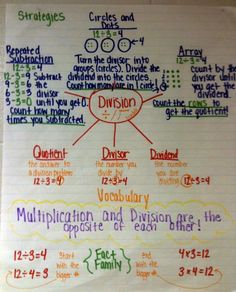 Strategies
Circles and
Dots
12÷3=4
=4
Turn the divisor into
groups (circles). Divide the
dividend into the circles.
Count how many are in 1 circle.
Repeated
Subtraction
12÷3=4
12-3=9
9-3=6
6-3=3
3-3=0
Subtract
the
divisor
until you get 0.
Count how many
times you subtracted.
Array
12÷3=4
count by the
divisor until
you get the
dividend.
count the rows to
get the quotient!
Division
Quotient
the answer to
a division problem
12÷3=4
Divisor
the number you
divide by
12÷3=4
Dividend
the number
you are
dividing
12÷3=4
Vocabulary
Multiplication and Division are the
opposite of each other!
12÷3=4
12÷4=3
Start
with the
bigger #
Fact
Family
End
with the
bigger #
4x3=12
3x4=12